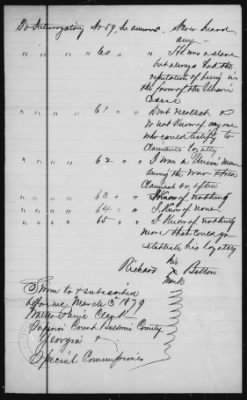 To Interrogatory No 59, he answers Never heard
any —
" " " 60 " " He was a slave
but always had the
reputation of being in
the favor of the Union
Cause
" " " 61 " " Dont recollect &
do not know of any one
who could testify to
Claimants loyalty
" " " 62 " " I was a Union man
during the war
Claimant
" " " 63 " " I know of nothing
" " " 64 " " I know of none
" " " 65 " " I know of nothing
more that can go
establish his loyalty
his
Richard X Batton
mark
Sworn to & subscribed
before me March 5 1879
Walter Clerk
Superior Court Baldwin County
Georgia &
Special Commissioner